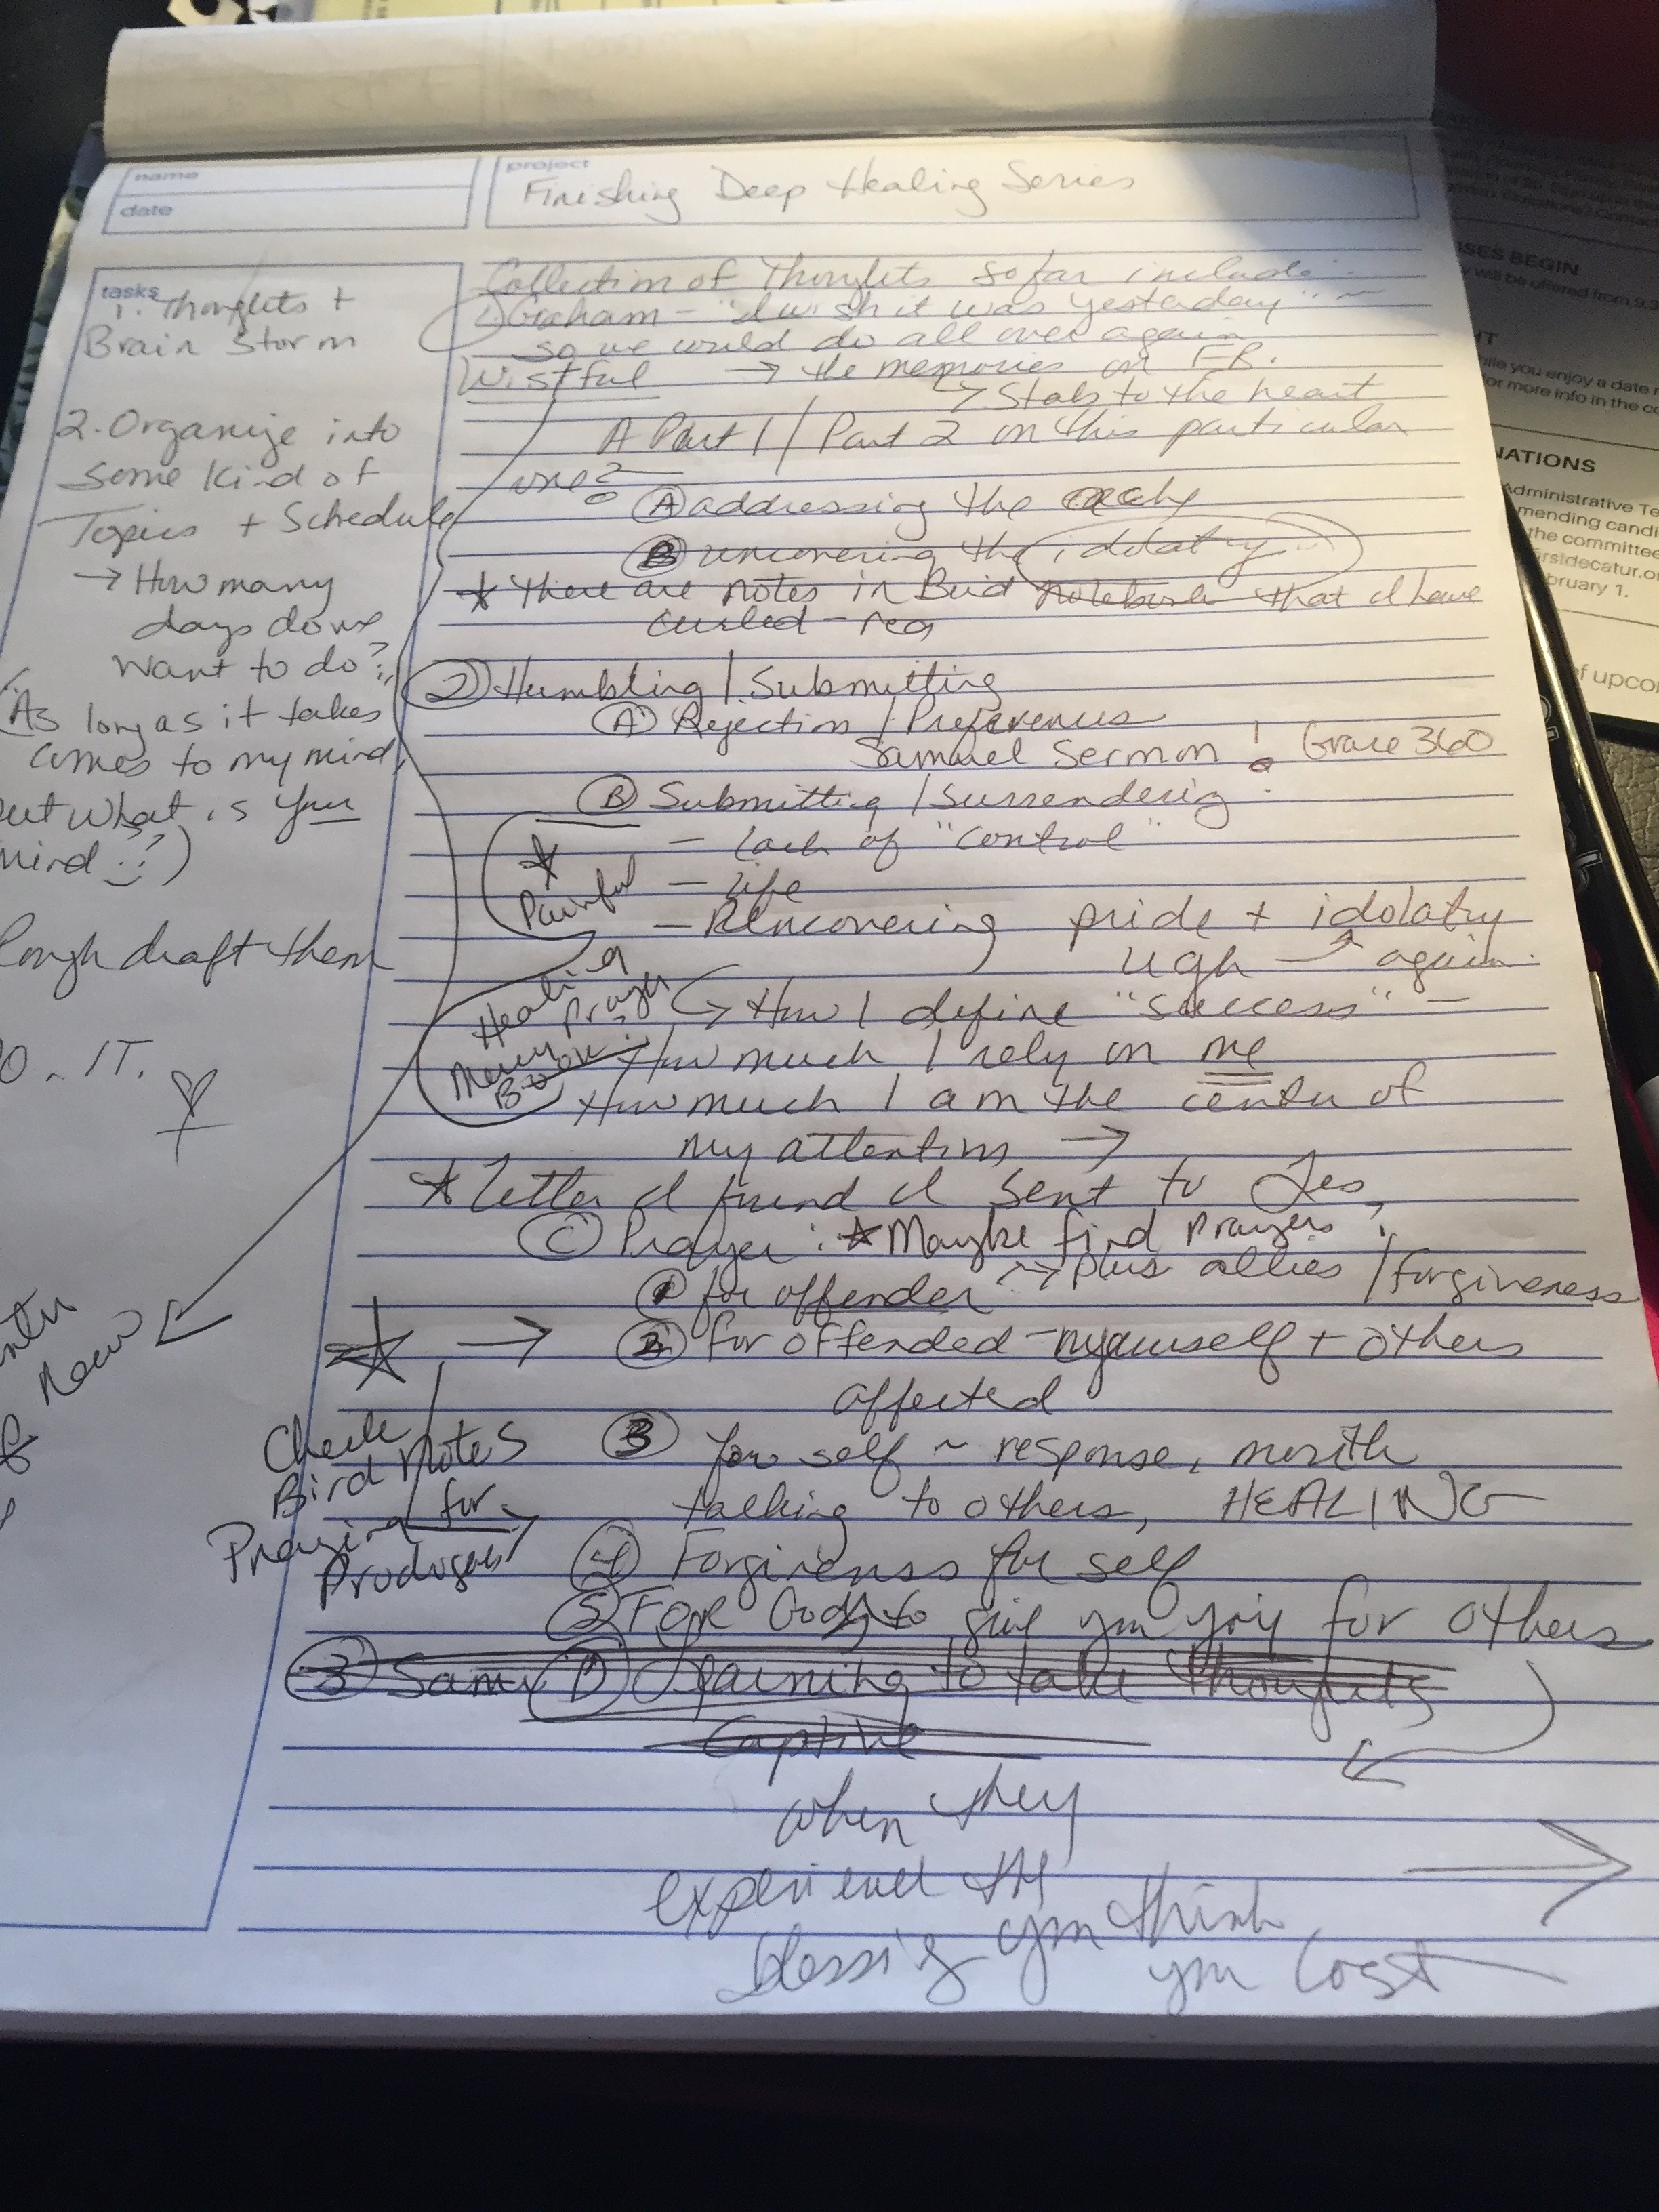 name
date
project
Finishing Deep Healing Series
tasks
1. Thoughts +
Brain Storm
2. Organize into
some kind of
Topics + Schedule
→ How many
days do we
want to do?
(As long as it takes
comes to my mind,
but what is your
mind :?)
Rough draft them
DO. IT.
new
Collection of Thoughts so far include:
1) Graham - "I wish it was yesterday" ~
so we could do all over again
Wistful → the memories on FB.
→ Stab to the heart
A Part 1 / Part 2 on this particular
one?
A addressing the
B uncovering the idolatry
* there are notes in Notebook that I have
circled - red
2 Humbling / Submitting
A Rejection / Preferences
Samuel Sermon! Grace 360
B Submitting / Surrendering
- lack of "control"
* Painful
- life
- Uncovering pride + idolatry
ugh → again
Healing
Prayer
Mercy
Book?
→ How I define "success" -
How much I rely on me
How much I am the center of
my attention →
* Letter I found I sent to Jes,
C Prayer: * Maybe find prayers!
1 for offender → plus allies / forgiveness
→ 2 for offended - myself + others
affected
Check
Bird Notes
Praying for
Prodigals
3 for self ~ response, mouth
talking to others, HEALING
4 Forgiveness for self
5 For God to give you joy for others
3 Same D Learning to take thoughts
Captive
when they
experience the
blessing you think
you lost
SES BEGIN
will be offered from 9:3
HT
hile you enjoy a date n
for more info in the co
NATIONS
Administrative Te
mending candi
the committee
irstdecatur.or
bruary 1.
of upcom